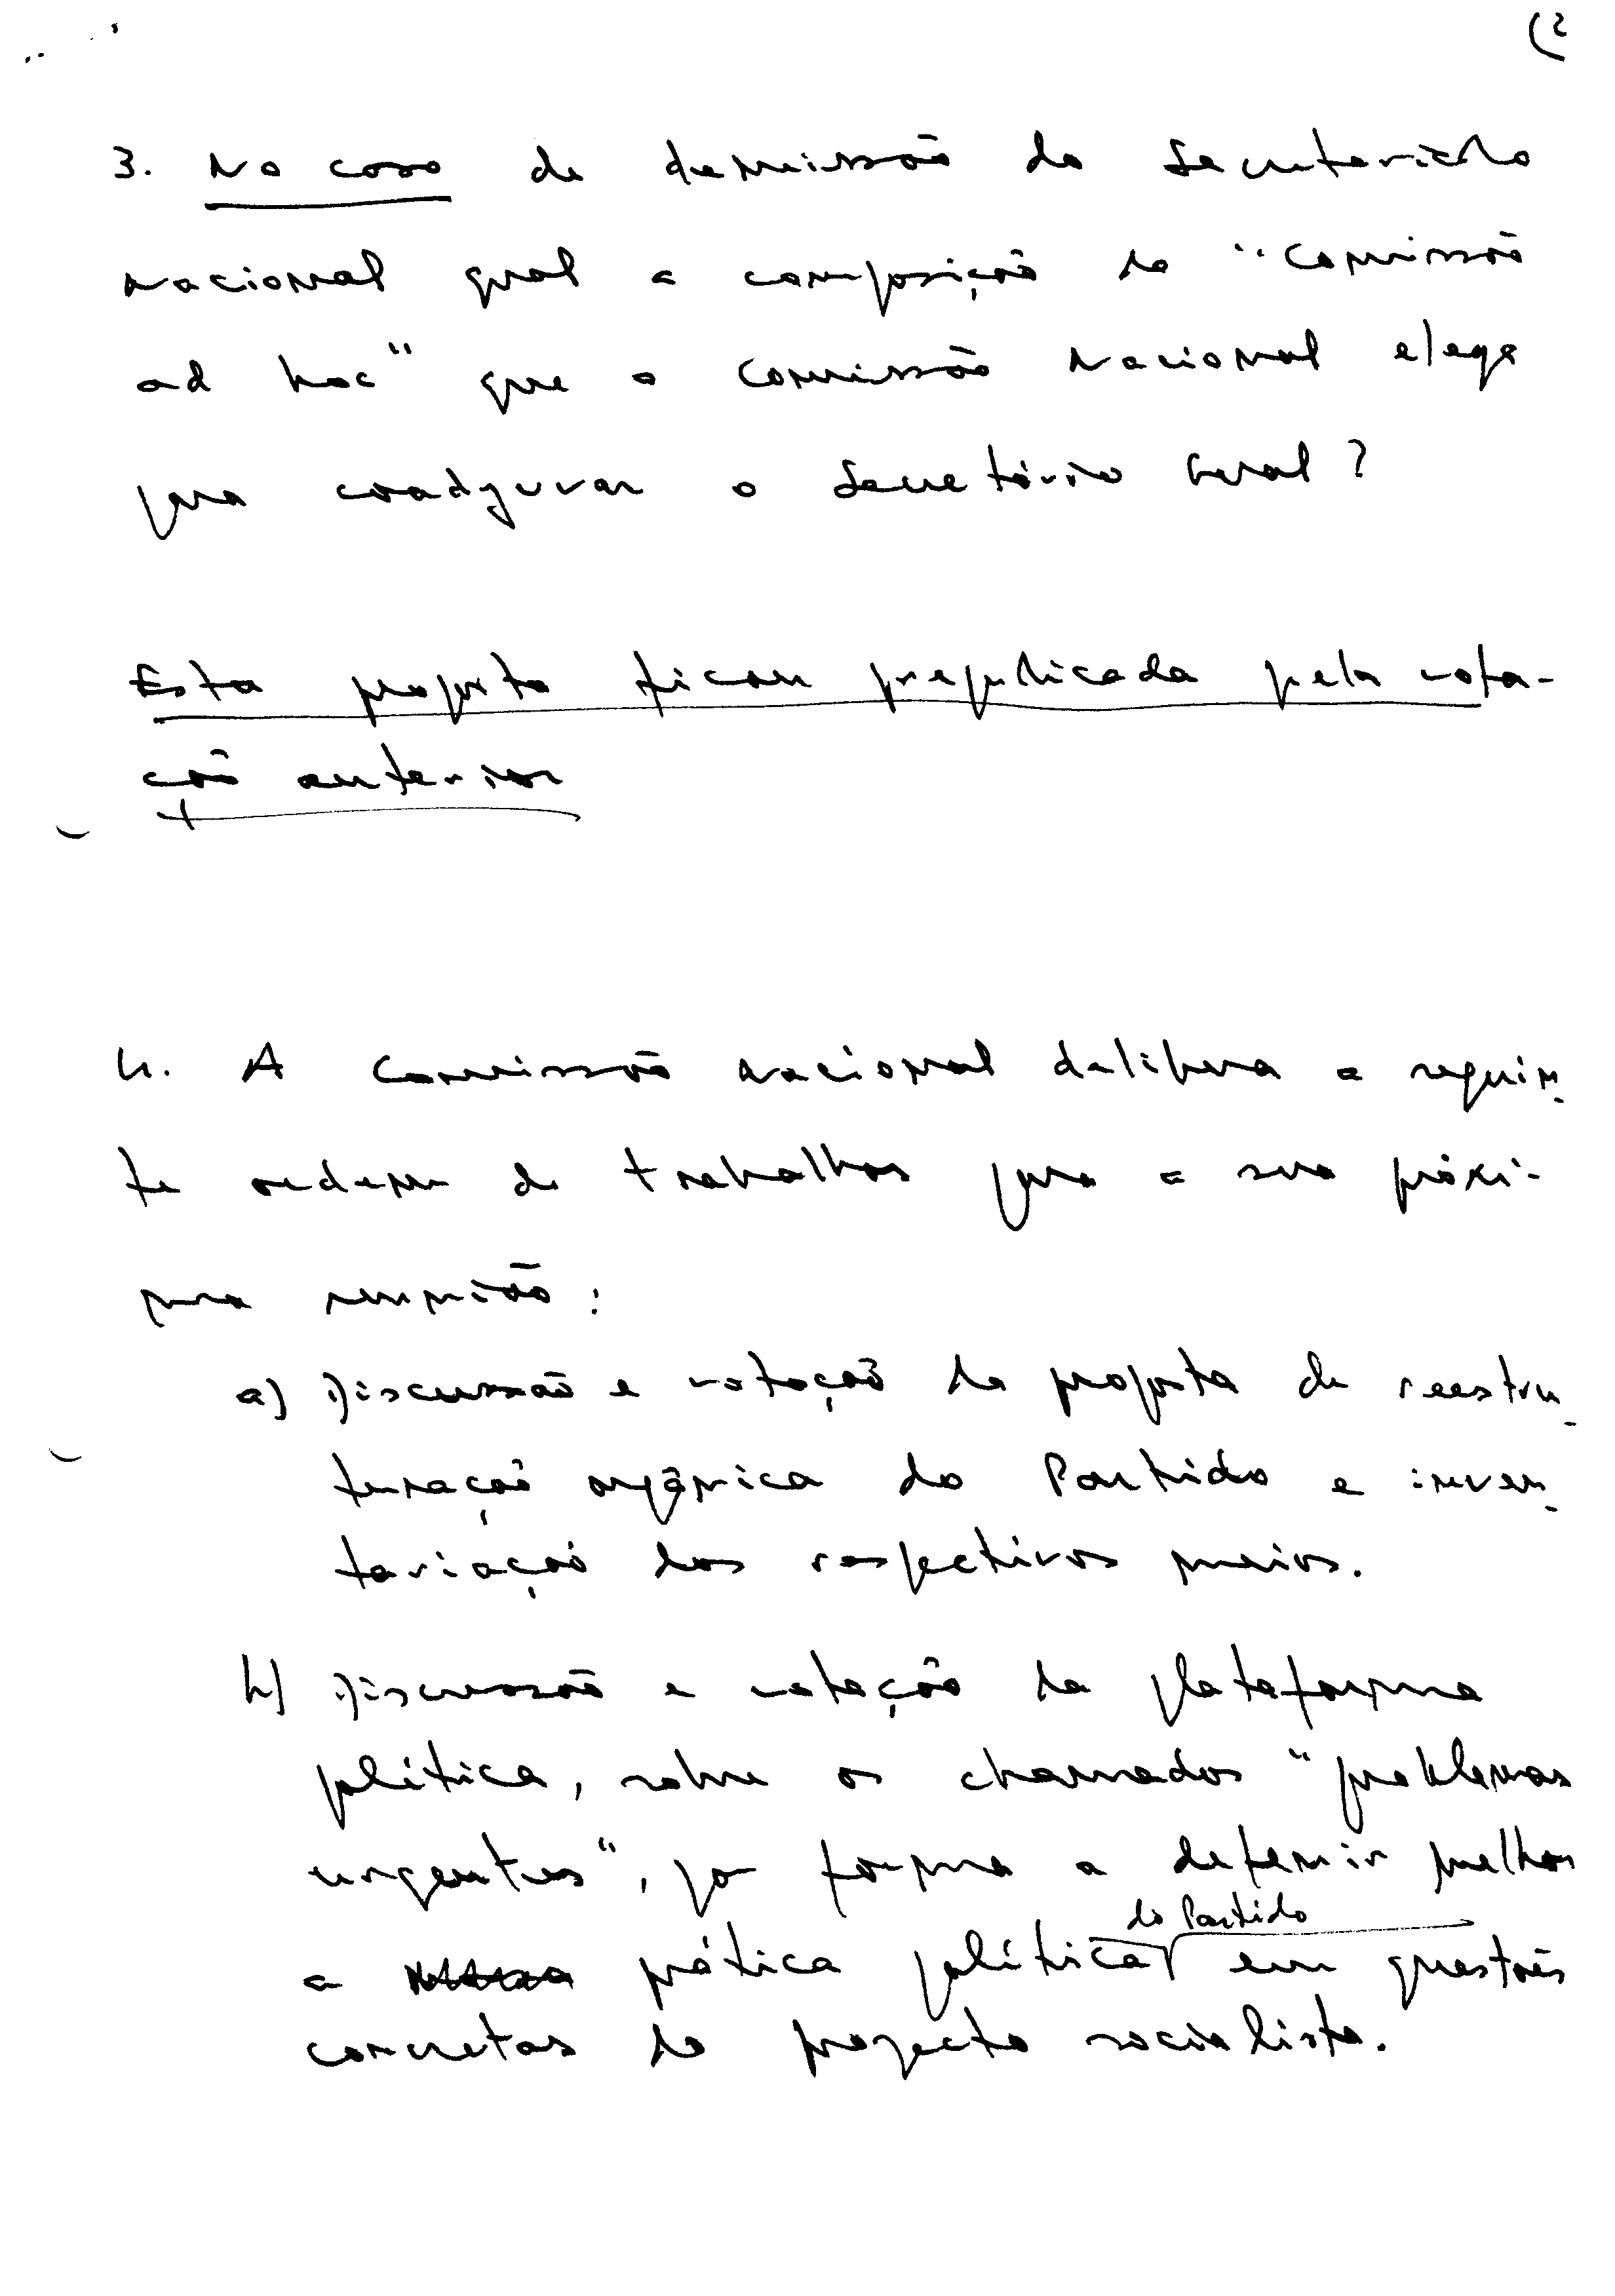 (2
3. No caso de demissão do Secretariado
Nacional qual a composição da "Comissão
ad hoc" que a Comissão Nacional elege
para coadjuvar o Secretário Geral?
Esta proposta ficou prejudicada pela vota-
ção anterior
4. A Comissão Nacional delibera a seguin-
te ordem de trabalhos para a sua próxi-
ma reunião:
a) Discussão e votação da proposta de reestru-
turação orgânica do Partido e inven-
tariação dos respectivos meios.
b) Discussão e votação da plataforma
política, sobre os chamados "problemas
urgentes", por forma a definir melhor
do Partido
a prática política em questões
concretas do projecto socialista.